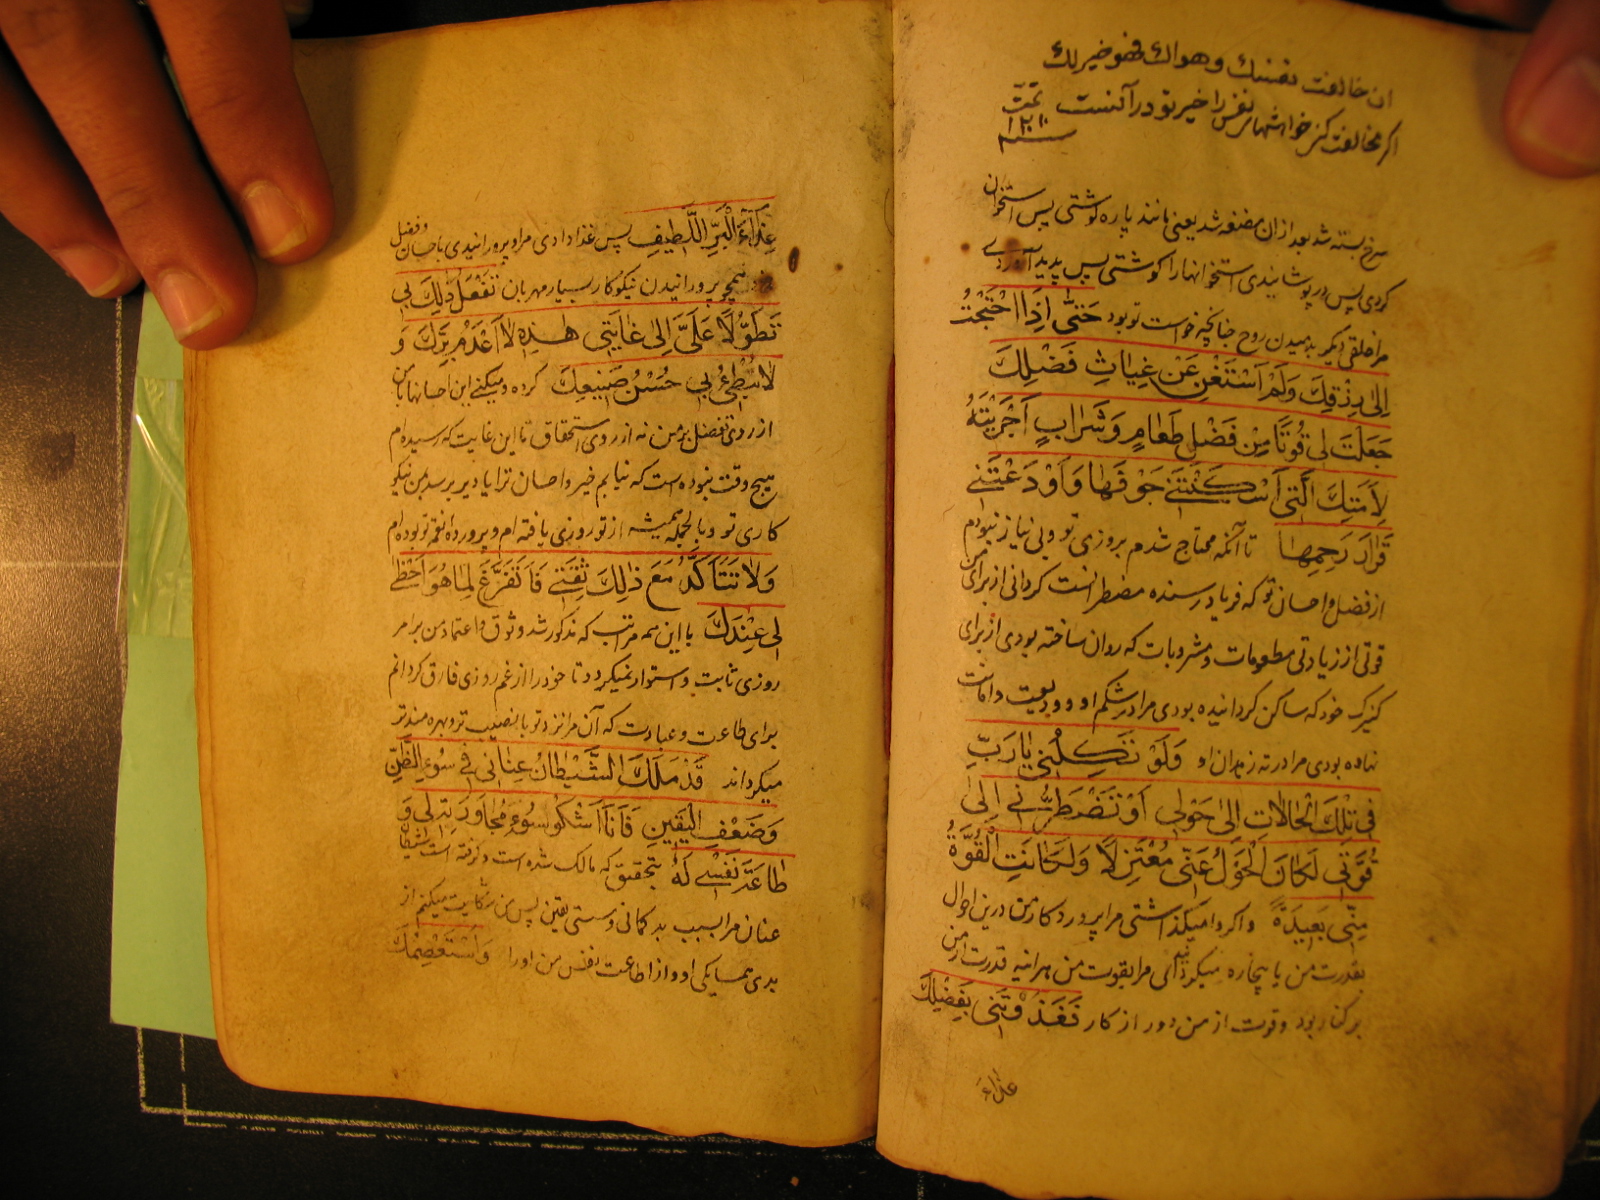 ان خالفت نفسك وهواك فهو خير لك
اكر مخالفت كنى خواهشهاى نفس را خير تو در آنست تمت
١٢١٠
سرخ بسته شد بعد ازان مضغه شد يعنى مانند پاره كوشتى پس استخوان
كردى پس در پوشانيدى استخوانها را كوشتى پس پديد آوردے
مرا خلقى ديكر بدميدن روح چنانچه خواست تو بود حَتّٰى اِذَا احْتَجْتُ
اِلٰى رِزْقِكَ وَلَمْ اَسْتَغْنِ عَنْ غِيَاثِ فَضْلِكَ
جَعَلْتَ لِى قُوتًا مِنْ فَضْلِ طَعَامٍ وَشَرَابٍ اَجْرَيْتَهُ
لِاَمَتِكَ الَّتِى اَسْكَنْتَنِى جَوْفَهَا وَاَوْدَعْتَنِى
قَرَارَ رَحِمِهَا تا آنكه محتاج شدم بروزى تو و بى نياز نبودم
از فضل و احسان تو كه فرياد رسنده مضطر انست كردانى از براى من
قوتى از زيادتى مطعومات و مشروبات كه روان ساخته بودى از براى
كنيزك خود كه ساكن كردانيده بودى مرا در شكم او و وديعت و امانت
نهاده بودى مرا در ته زهدان او وَلَوْ تَكِلْنِى يَا رَبِّ
فِى تِلْكَ الْحَالَاتِ اِلٰى حَوْلِى اَوْ تَضْطَرُّنِى اِلٰى
قُوَّتِى لَكَانَ الْحَوْلُ عَنِّى مُعْتَزِلًا وَلَكَانَتِ الْقُوَّةُ
مِنِّى بَعِيدَةً و اكر وا ميكذاشتى مرا پروردكار من درين احوال
بقدرت من يا بيچاره ميكردانيدى مرا بقوت من هر اينه قدرت از من
بركنار بود و قوت از من دور از كار فَغَذَوْتَنِى بِفَضْلِكَ
غذاءَ
غِذَاءَ الْبَرِّ اللَّطِيفِ پس غذا دادى مرا و پرورانيدى باحسان و فضل
خود همچو پرورانيدن نيكوكار بسيار مهربان تَفْعَلُ ذٰلِكَ بِى
تَطَوُّلًا عَلَىَّ اِلٰى غَايَتِى هٰذِهِ لَا اَعْدَمُ بِرَّكَ وَ
لَا يُبْطِئُ بِى حُسْنُ صَنِيعِكَ كرده و ميكنى اين احسانها با من
از روى تفضل بر من نه از روى استحقاق تا اين غايت كه رسيده ام
هيچ وقت نبوده است كه نيابم خير و احسان ترا يا دير برسد بمن نيكو
كارى تو و بالجمله هميشه از تو روزى يافته ام و پرورده نعمت تو بوده ام
وَلَا تَتَاَكَّدُ مَعَ ذٰلِكَ ثِقَتِى فَاَتَفَرَّغَ لِمَا هُوَ اَحْظٰى
لِى عِنْدَكَ با اين همه مراتب كه مذكور شد وثوق و اعتماد من بر امر
روزى ثابت و استوار نميكردد تا خود را از غم روزى فارق كردانم
براى طاعت و عبادت كه آن مرا نزد تو با نصيب تر و بهره مندتر
ميكرداند قَدْ مَلَكَ الشَّيْطَانُ عِنَانِى فِى سُوءِ الظَّنِّ
وَضَعْفِ الْيَقِينِ فَاَنَا اَشْكُو سُوءَ مُجَاوَرَتِهِ لِى وَ
طَاعَةَ نَفْسِى لَهُ بتحقيق كه مالك شده است و كرفته است شيطان
عنان مرا بسبب بد كمانى و سستى يقين پس من شكايت ميكنم از
بدى همسايكى او و از اطاعت نفس من او را وَاَسْتَعْصِمُكَ